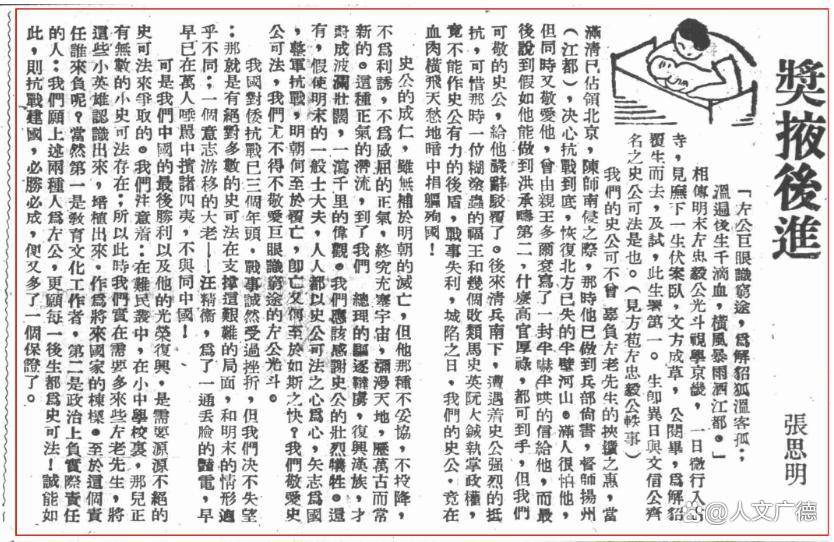 獎掖後進
張思明
「左公巨眼識窮途，為解貂狐溫客孤；
溫過後生千滴血，橫風暴雨洒江都。」
相傳明末左忠毅公光斗視學京畿，一日微行入古
寺，見廡下一生伏案臥，文方成草，公閱畢，為解貂
覆生而去，及試，此生署第一。生即異日與文信公齊
名之史公可法是也。（見方苞左忠毅公軼事）
我們的史公可不曾辜負左老先生的挾纊之惠，當
滿清已佔領北京，陳師南侵之際，那時他已做到兵部尚書，督師揚州
（江都），決心抗戰到底，恢復北方已失的半壁河山。滿人很怕他，
但同時又敬愛他，曾由親王多爾袞寫了一封半嚇半哄的信給他，而最
後說到假如他能做到洪承疇第二，什麼高官厚祿，都可到手，但我們
可敬的史公，給他嚴辭駁覆了。後來清兵南下，遭遇着史公強烈的抵
抗，可惜那時一位糊塗蟲的福王和幾個敗類馬史英阮大鋮執掌政權，
竟不能作史公有力的後盾，戰事失利，城陷之日，我們的史公，竟在
血肉橫飛天愁地暗中捐軀殉國！
史公的成仁，雖無補於明朝的滅亡，但他那種不妥協，不投降，
不為利誘，不為威屈的正氣，終究充塞宇宙，瀰漫天地，歷萬古而常
新的。這種正氣的潛流，到了我們　總理的驅逐韃虜，復興漢族，才
蔚成波瀾壯闊，一瀉千里的偉觀。我們應該感謝史公的壯烈犧牲。還
有，假使明末的一般士大夫，人人都以史公可法之心為心，矢志為國
，整軍抗戰，明朝何至於覆亡，即亡又何至於如斯之快？我們敬愛史
公可法，我們尤不得不敬愛巨眼識窮途的左公光斗。
我國對倭抗戰已三個年頭，戰事誠然受過挫折，但我們決不失望
：那就是有絕對多數的史可法在支撐這艱難的局面，和明末的情形適
乎不同；一個意志游移的大老——汪精衛，為了一通丟臉的豔電，早
早已在萬人唾罵中擯諸四夷，不與同中國！
可是我們中國的最後勝利以及他的光榮復興，是需要源源不絕的
史可法來爭取的。我們注意着：在難民叢中，在小中學校裏，那兒正
有無數的小史可法存在；所以此時我們實在需要多來些左老先生，將
這些小英雄認識出來，培植出來，作為將來國家的棟樑。至於這個責
任誰來負呢？當然第一是教育文化工作者，第二是政治上負實際責任
的人：我們願上述兩種人為左公，更願每一後生都為史可法！誠能如
此，則抗戰建國，必勝必成，便又多了一個保證了。
@人文广德